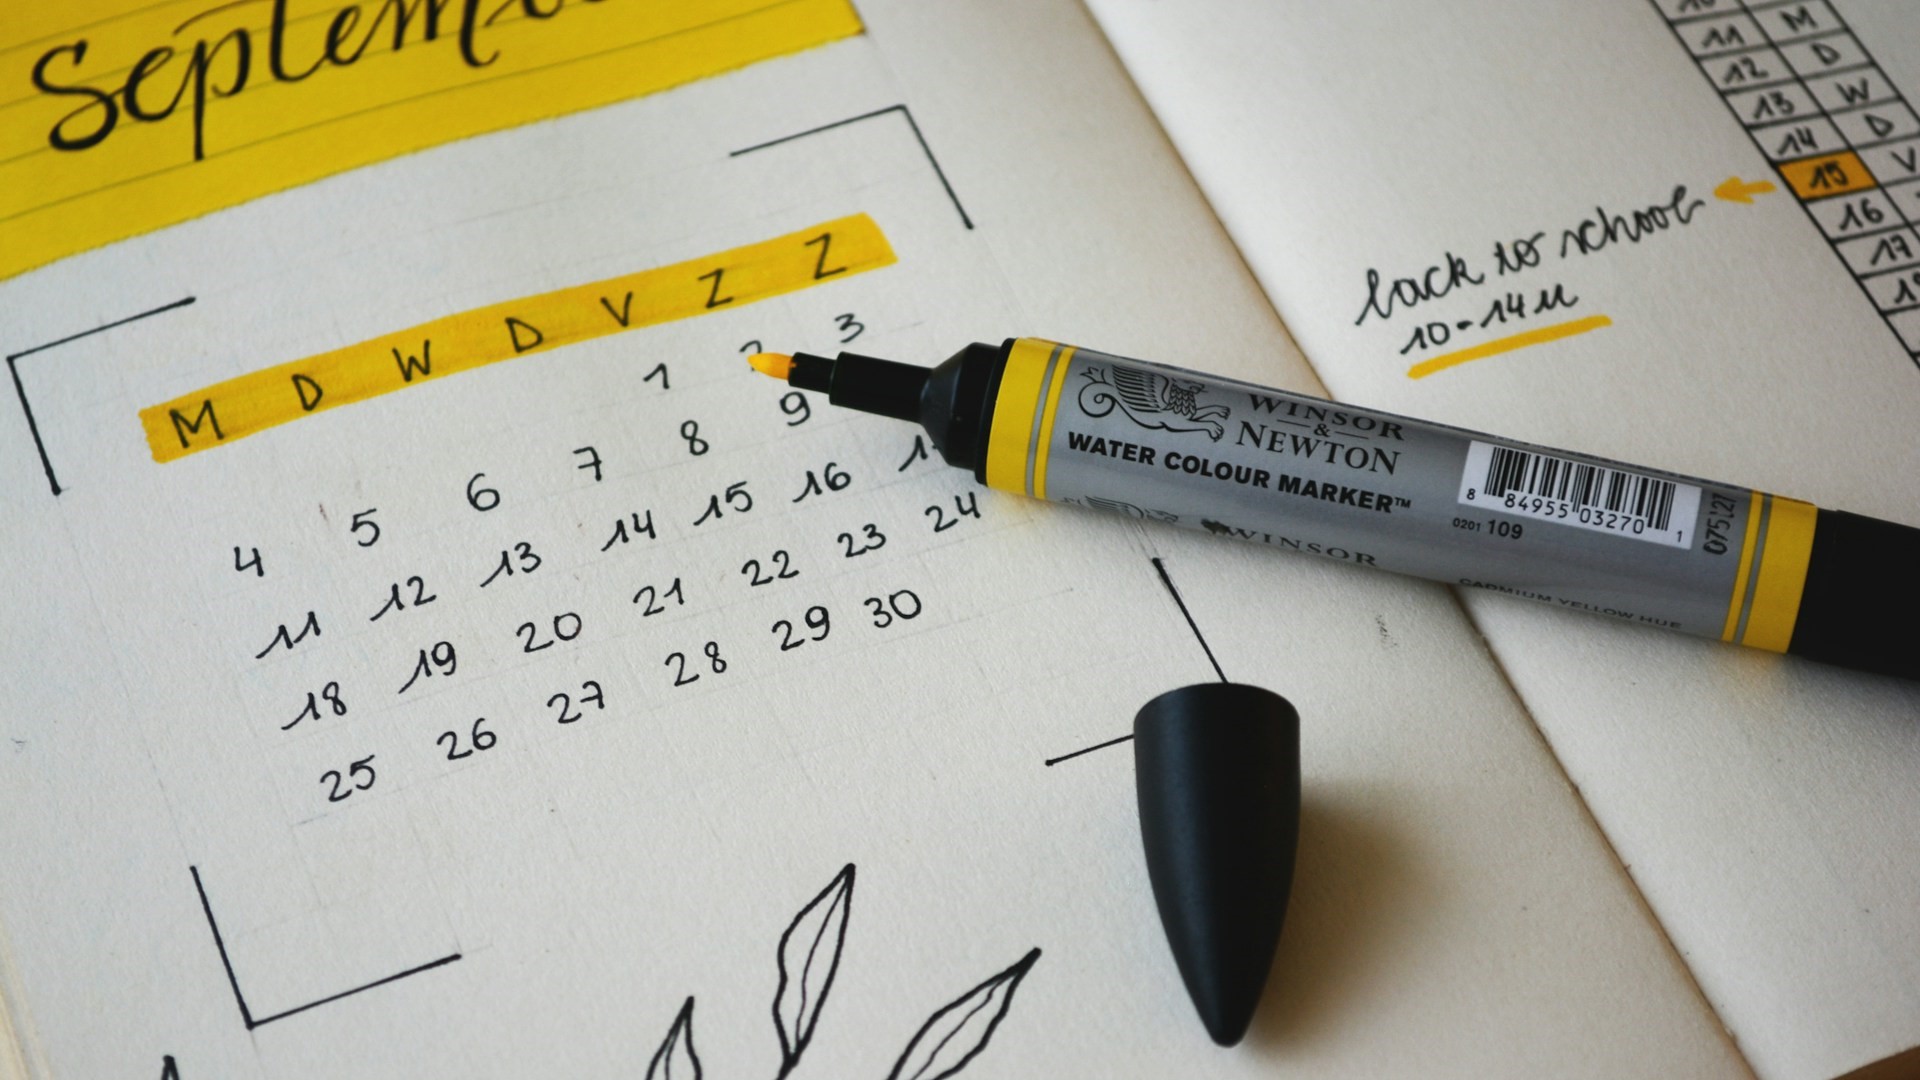 Septem
M D W D V Z Z
1 2 3
4 5 6 7 8 9
11 12 13 14 15 16
18 19 20 21 22 23 24
25 26 27 28 29 30
WINSOR
&
NEWTON
WATER COLOUR MARKER™
WINSOR
8 84955 03270 1
0201 109
075127
CADMIUM YELLOW HUE
back to school
10-14u
10
11 M
12 D
13 W
14 D
15 V
16
17